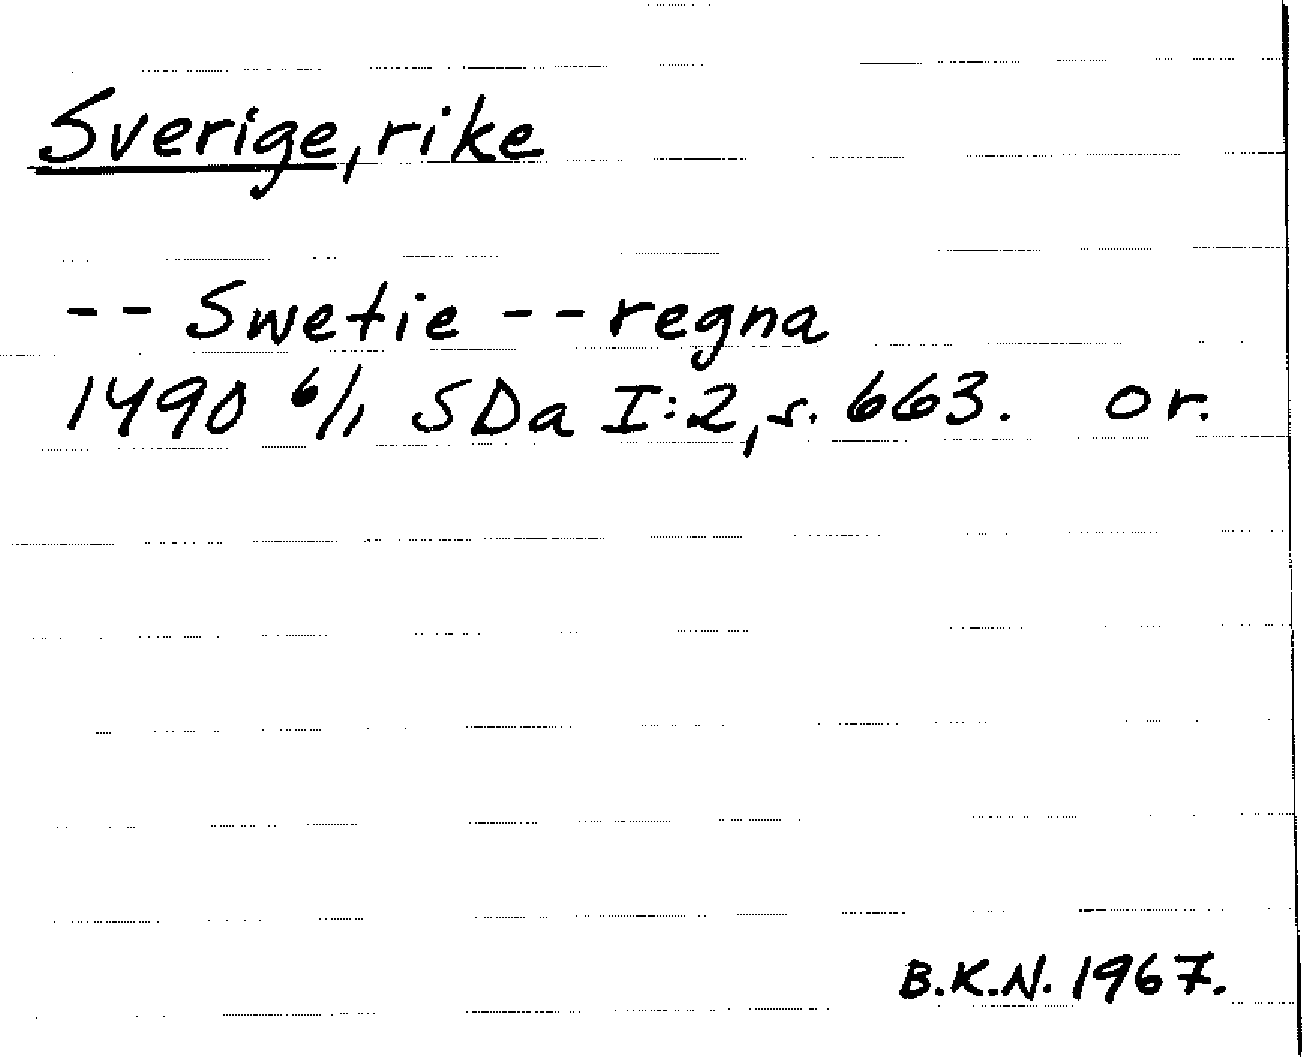 Sverige, rike
-- Swetie -- regna
1490 6/1 SDa I:2, s. 663. or.
B.K.N. 1967.